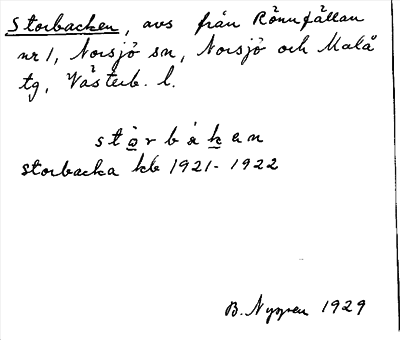 Storbacken, avs från Rönnfällan
nr 1, Norsjö sn, Norsjö och Malå
tg, Västerb. l.
storbakan
storbacka kb 1921-1922
B. Nyppen 1929